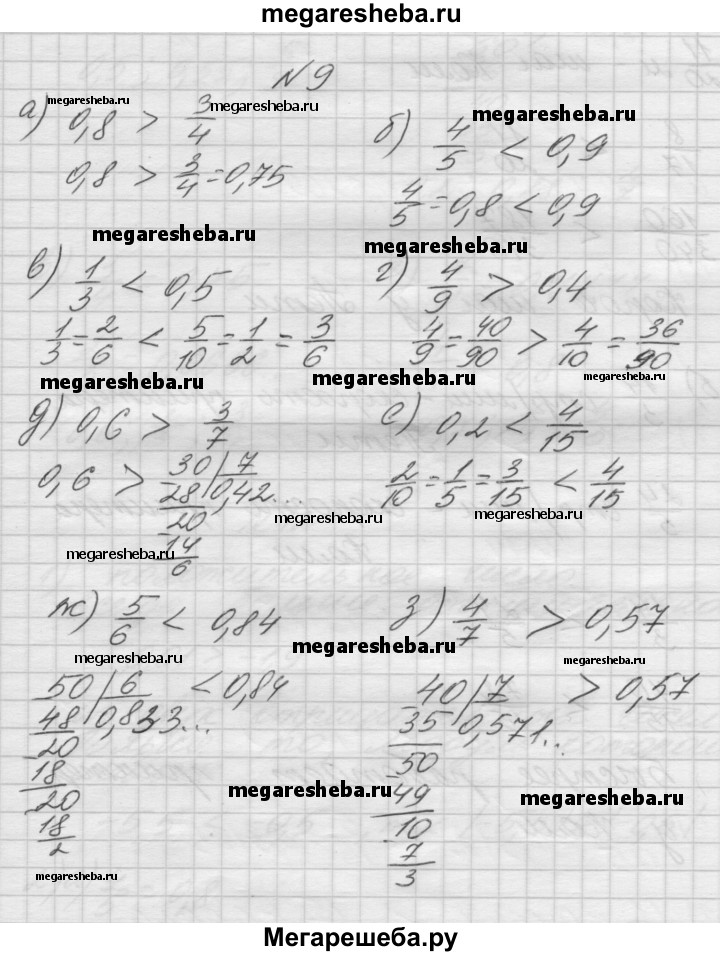 megaresheba.ru
N 9
megaresheba.ru
а) 0,8 > 3/4
megaresheba.ru
0,8 > 3/4 = 0,75
megaresheba.ru
б) 4/5 < 0,9
4/5 = 0,8 < 0,9
megaresheba.ru
megaresheba.ru
в) 1/3 < 0,5
1/3 = 2/6 < 5/10 = 1/2 = 3/6
г) 4/9 > 0,4
4/9 = 40/90 > 4/10 = 36/90
megaresheba.ru
megaresheba.ru
megaresheba.ru
д) 0,6 > 3/7
0,6 > 30 | 7
28 | 0,42...
20
14
6
megaresheba.ru
е) 0,2 < 4/15
2/10 = 1/5 = 3/15 < 4/15
megaresheba.ru
megaresheba.ru
ж) 5/6 < 0,84
megaresheba.ru
50 | 6 < 0,84
48 | 0,833...
20
18
20
18
2
megaresheba.ru
з) 4/7 > 0,57
megaresheba.ru
megaresheba.ru
40 | 7 > 0,57
35 | 0,571...
50
49
10
7
3
megaresheba.ru
megaresheba.ru
megaresheba.ru
Мегарешеба.ру